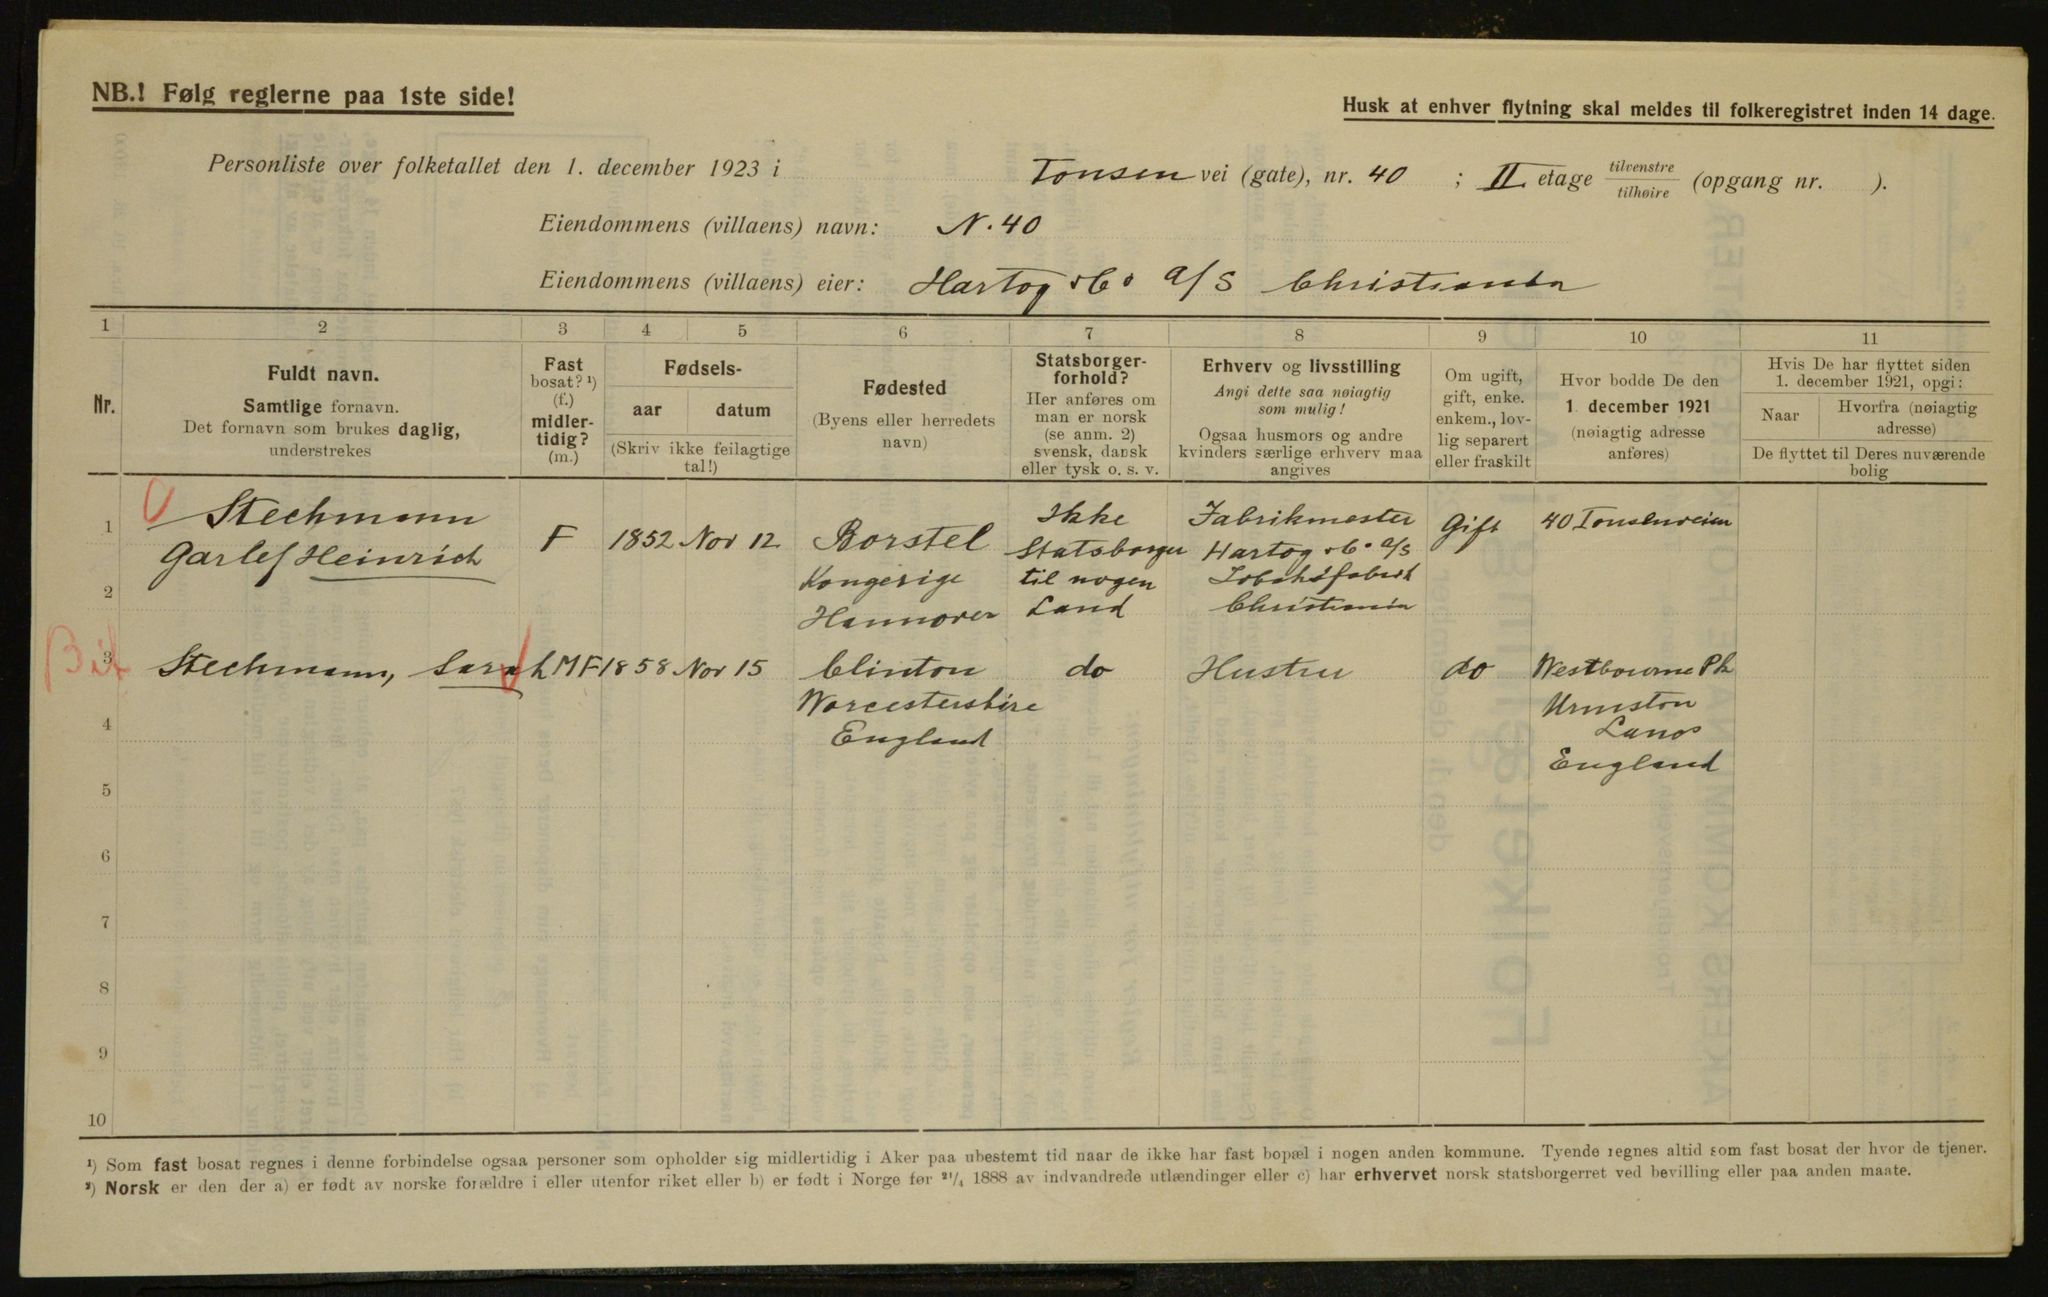 NB.! Følg reglerne paa 1ste side!
Husk at enhver flytning skal meldes til folkeregistret inden 14 dage.
Personliste over folketallet den 1. december 1923 i Tonsen vei (gate), nr. 40 ; II etage tilvenstre tilhøire (opgang nr. ).
Eiendommens (villaens) navn: N. 40
Eiendommens (villaens) eier: Hartog & Co a/s Christiania
1 2 3 4 5 6 7 8 9 10 11
Nr.
Fuldt navn.
Samtlige fornavn.
Det fornavn som brukes daglig,
understrekes
Fast
bosat? ¹)
(f.)
midler-
tidig?
(m.)
Fødsels-
aar datum
(Skriv ikke feilagtige
tal!)
Fødested
(Byens eller herredets
navn)
Statsborger-
forhold?
Her anføres om
man er norsk
(se anm. 2)
svensk, dansk
eller tysk o. s. v.
Erhverv og livsstilling
Angi dette saa nøiagtig
som mulig!
Ogsaa husmors og andre
kvinders særlige erhverv maa
angives
Om ugift,
gift, enke.
enkem., lov-
lig separert
eller fraskilt
Hvor bodde De den
1 december 1921
(nøiagtig adresse
anføres)
Hvis De har flyttet siden
1. december 1921, opgi:
Naar
Hvorfra (nøiagtig
adresse)
De flyttet til Deres nuværende
bolig
1
Stechmann
Garlef Heinrich
F
1852 Nov 12
Borstel
Kongerige
Hannover
Ikke
Statsborger
til nogen
Land
Fabrikmester
Hartog & Co a/s
Christiania
Gift
40 Tonsenveien
2
3
Stechmann, Sarah
M F
1858 Nov 15
Clinton
Worcestershire
England
do
Hustru
do
Westbourne Pk
Urmston
Lancs
England
4
5
6
7
8
9
10
¹) Som fast bosat regnes i denne forbindelse ogsaa personer som opholder sig midlertidig i Aker paa ubestemt tid naar de ikke har fast bopæl i nogen anden kommune. Tyende regnes altid som fast bosat der hvor de tjener.
²) Norsk er den der a) er født av norske forældre i eller utenfor riket eller b) er født i Norge før 21/4 1888 av indvandrede utlændinger eller c) har erhvervet norsk statsborgerret ved bevilling eller paa anden maate.